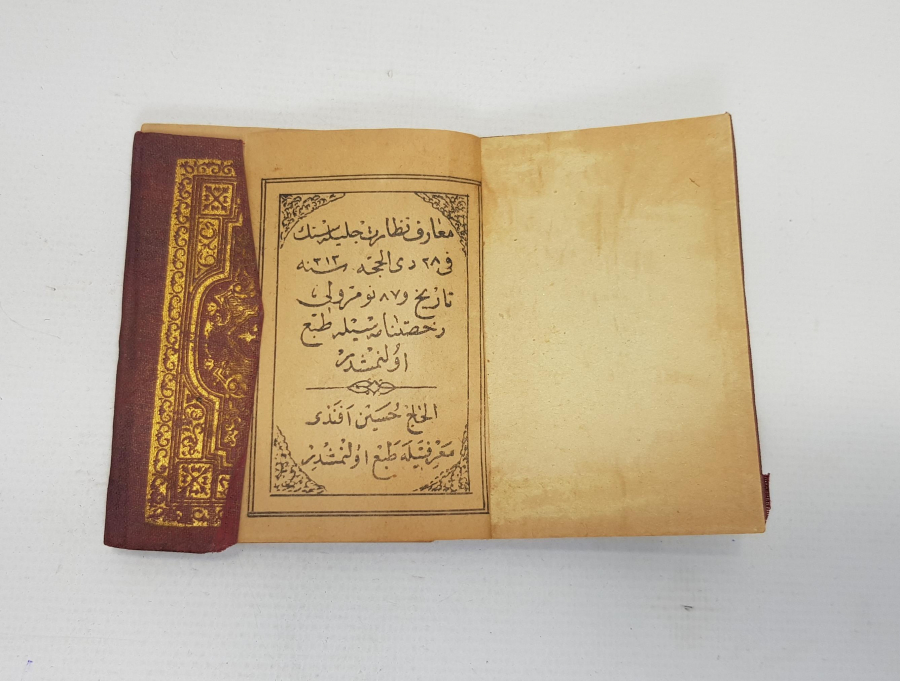 معارف نظارت جليله‌سنك
فى ٢٨ ذى الحجه سنه ٣١٣
تاريخ و ٨٧ نومرولى
رخصتنامه سيله طبع
اولنمشدر
الحاج حسين افندى
معرفتيله طبع اولنمشدر